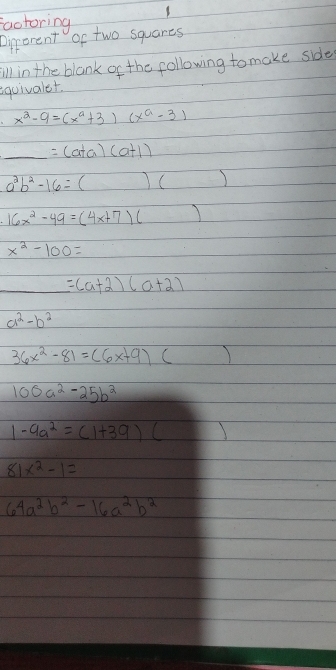 Factoring
1
Different of two squares
Fill in the blank of the following to make side
equivalet.
x² - 9 = (xᵃ + 3) (xᵃ - 3)
____ = (a+a) (a+1)
a²b² - 16 = ( ) ( )
16x² - 49 = (4x+7) ( )
x² - 100 =
____ = (a+2) (a+2)
a² - b²
36x² - 81 = (6x+9) ( )
100a² - 25b²
1 - 9a² = (1+39) ( )
81x² - 1 =
64a²b² - 16a²b²